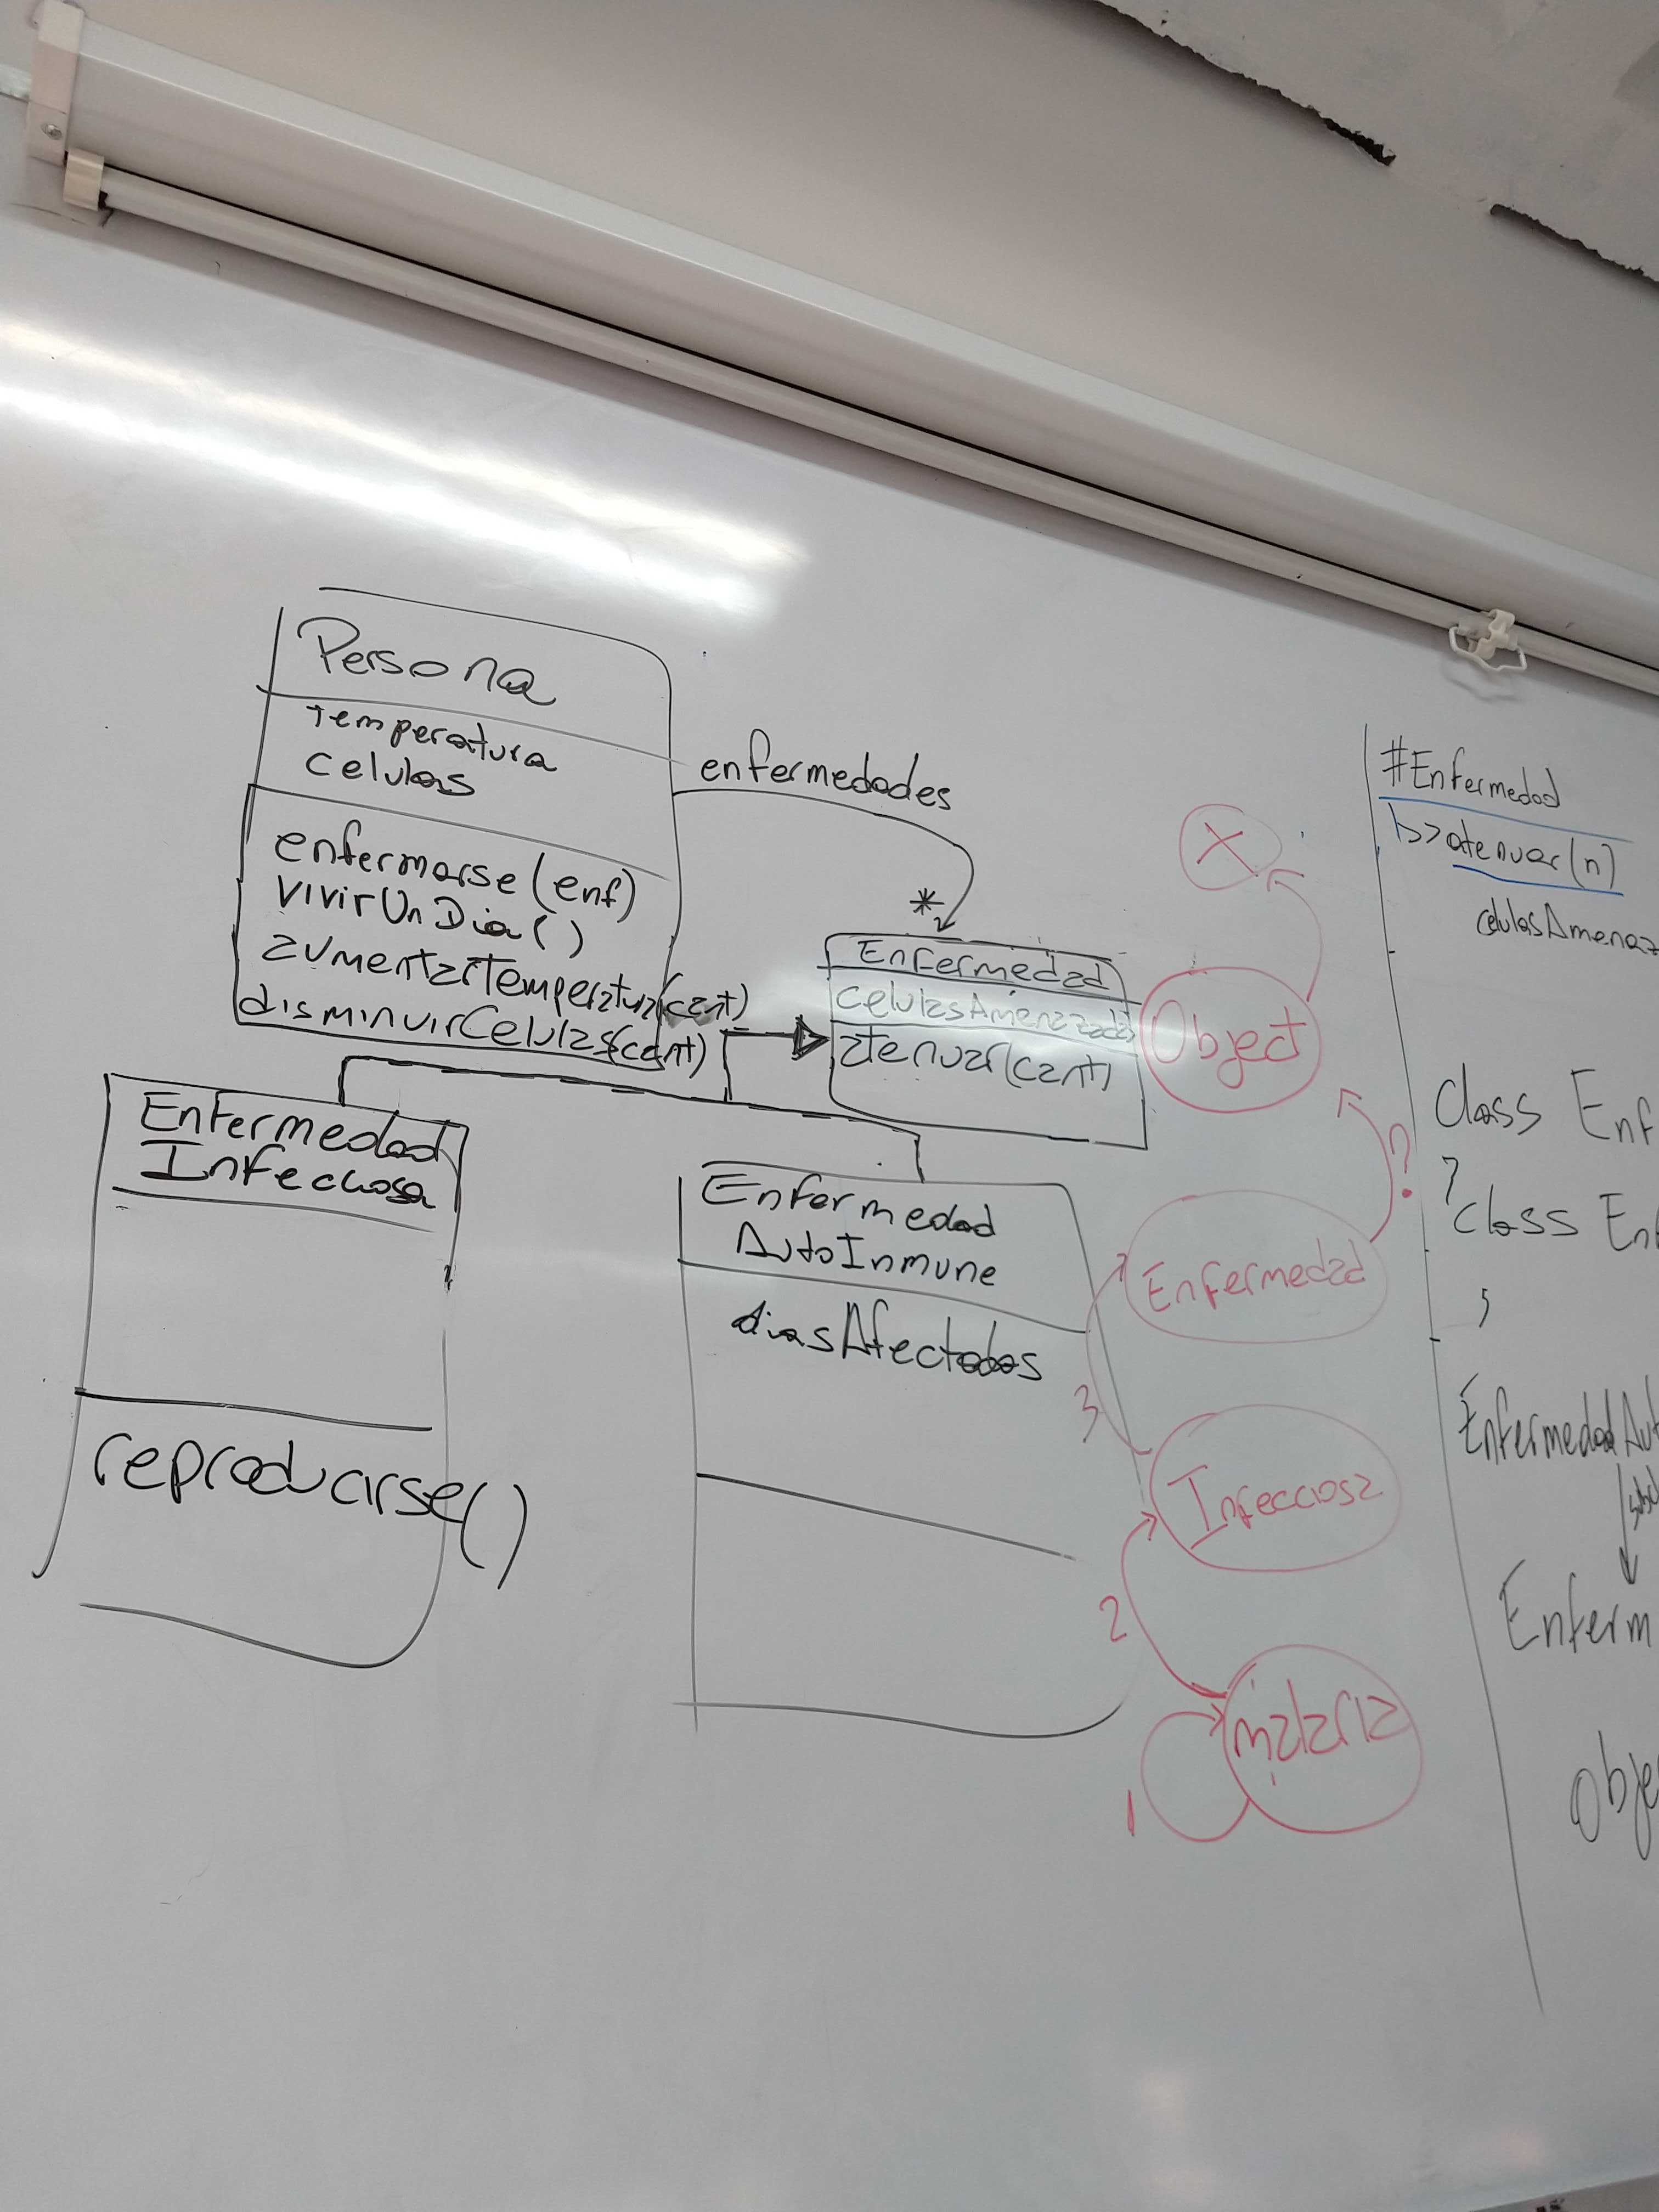 Persona
temperatura
celulas
enfermarse(enf)
vivirUnDia()
aumentarTemperatura(cant)
disminuirCelulas(cant)
enfermedades
*
Enfermedad
celulasAmenazadas
atenuar(cant)
Enfermedad
Infecciosa
reproducirse()
Enfermedad
AutoInmune
diasAfectados
X
Object
?
Enfermedad
3
Infecciosa
2
malaria
1
#Enfermedad
>>atenuar(n)
celulasAmenaz
Class Enf
}
Class Enf
}
EnfermedadAut
Enferm
Obje